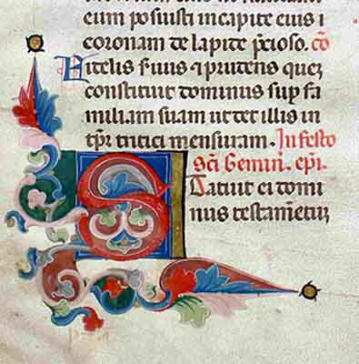 eum posuisti in capite eius i
coronam de lapide p̄cioso. cō
Fidelis s̄uus ⁊ prudens quez
constituit dominus sup̱ fa
miliam suam ut det illis in
tp̄r tritici mensuram. In festo
sc̄i Gemin̄. ep̄i.
Statuit ei domi
nus testam̄etuz